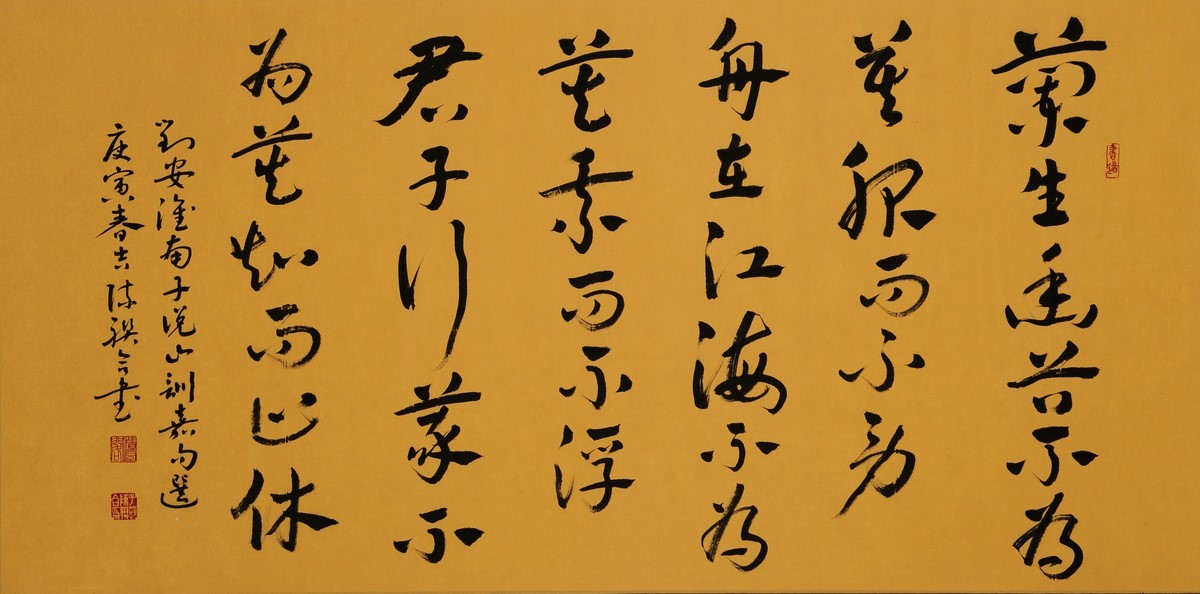 蘭生幽谷不為
莫服而不芳
舟在江海不為
莫乘而不浮
君子行義不
為莫知而止休
劉安淮南子說山訓嘉句選
庚寅春吉陳聯合書